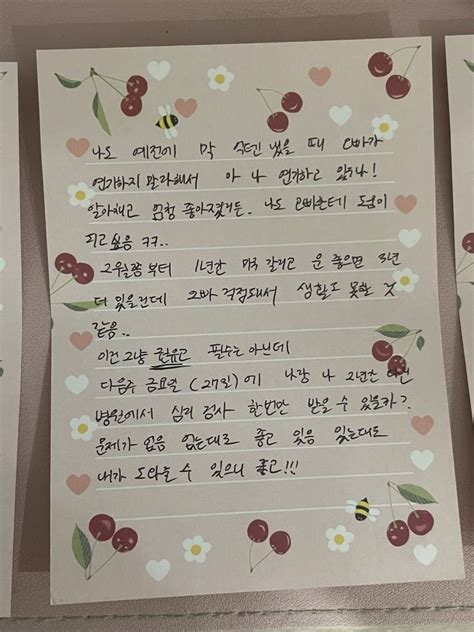 나도 예전에 막 억텐 냈을 때 오빠가
연기하지 말라해서 아 나 연기하고 있구나!
알아채고 엄청 좋아졌거든. 나도 오빠한테 도움이
되고 싶음 ㅋㅋ..
2월쯤부터 1년간 미국 갈거고 운 좋으면 3년
더 있을건데 오빠 걱정돼서 생활도 못할 것
같음..
이건 그냥 권유고 필수는 아닌데
다음주 금요일 (27일)에 나랑 나 2년간 다닌
병원에서 심리 검사 한번만 받을 수 있을까?
문제가 없음 없는대로 좋고 있음 있는대로
내가 도와줄 수 있으니 좋고!!!